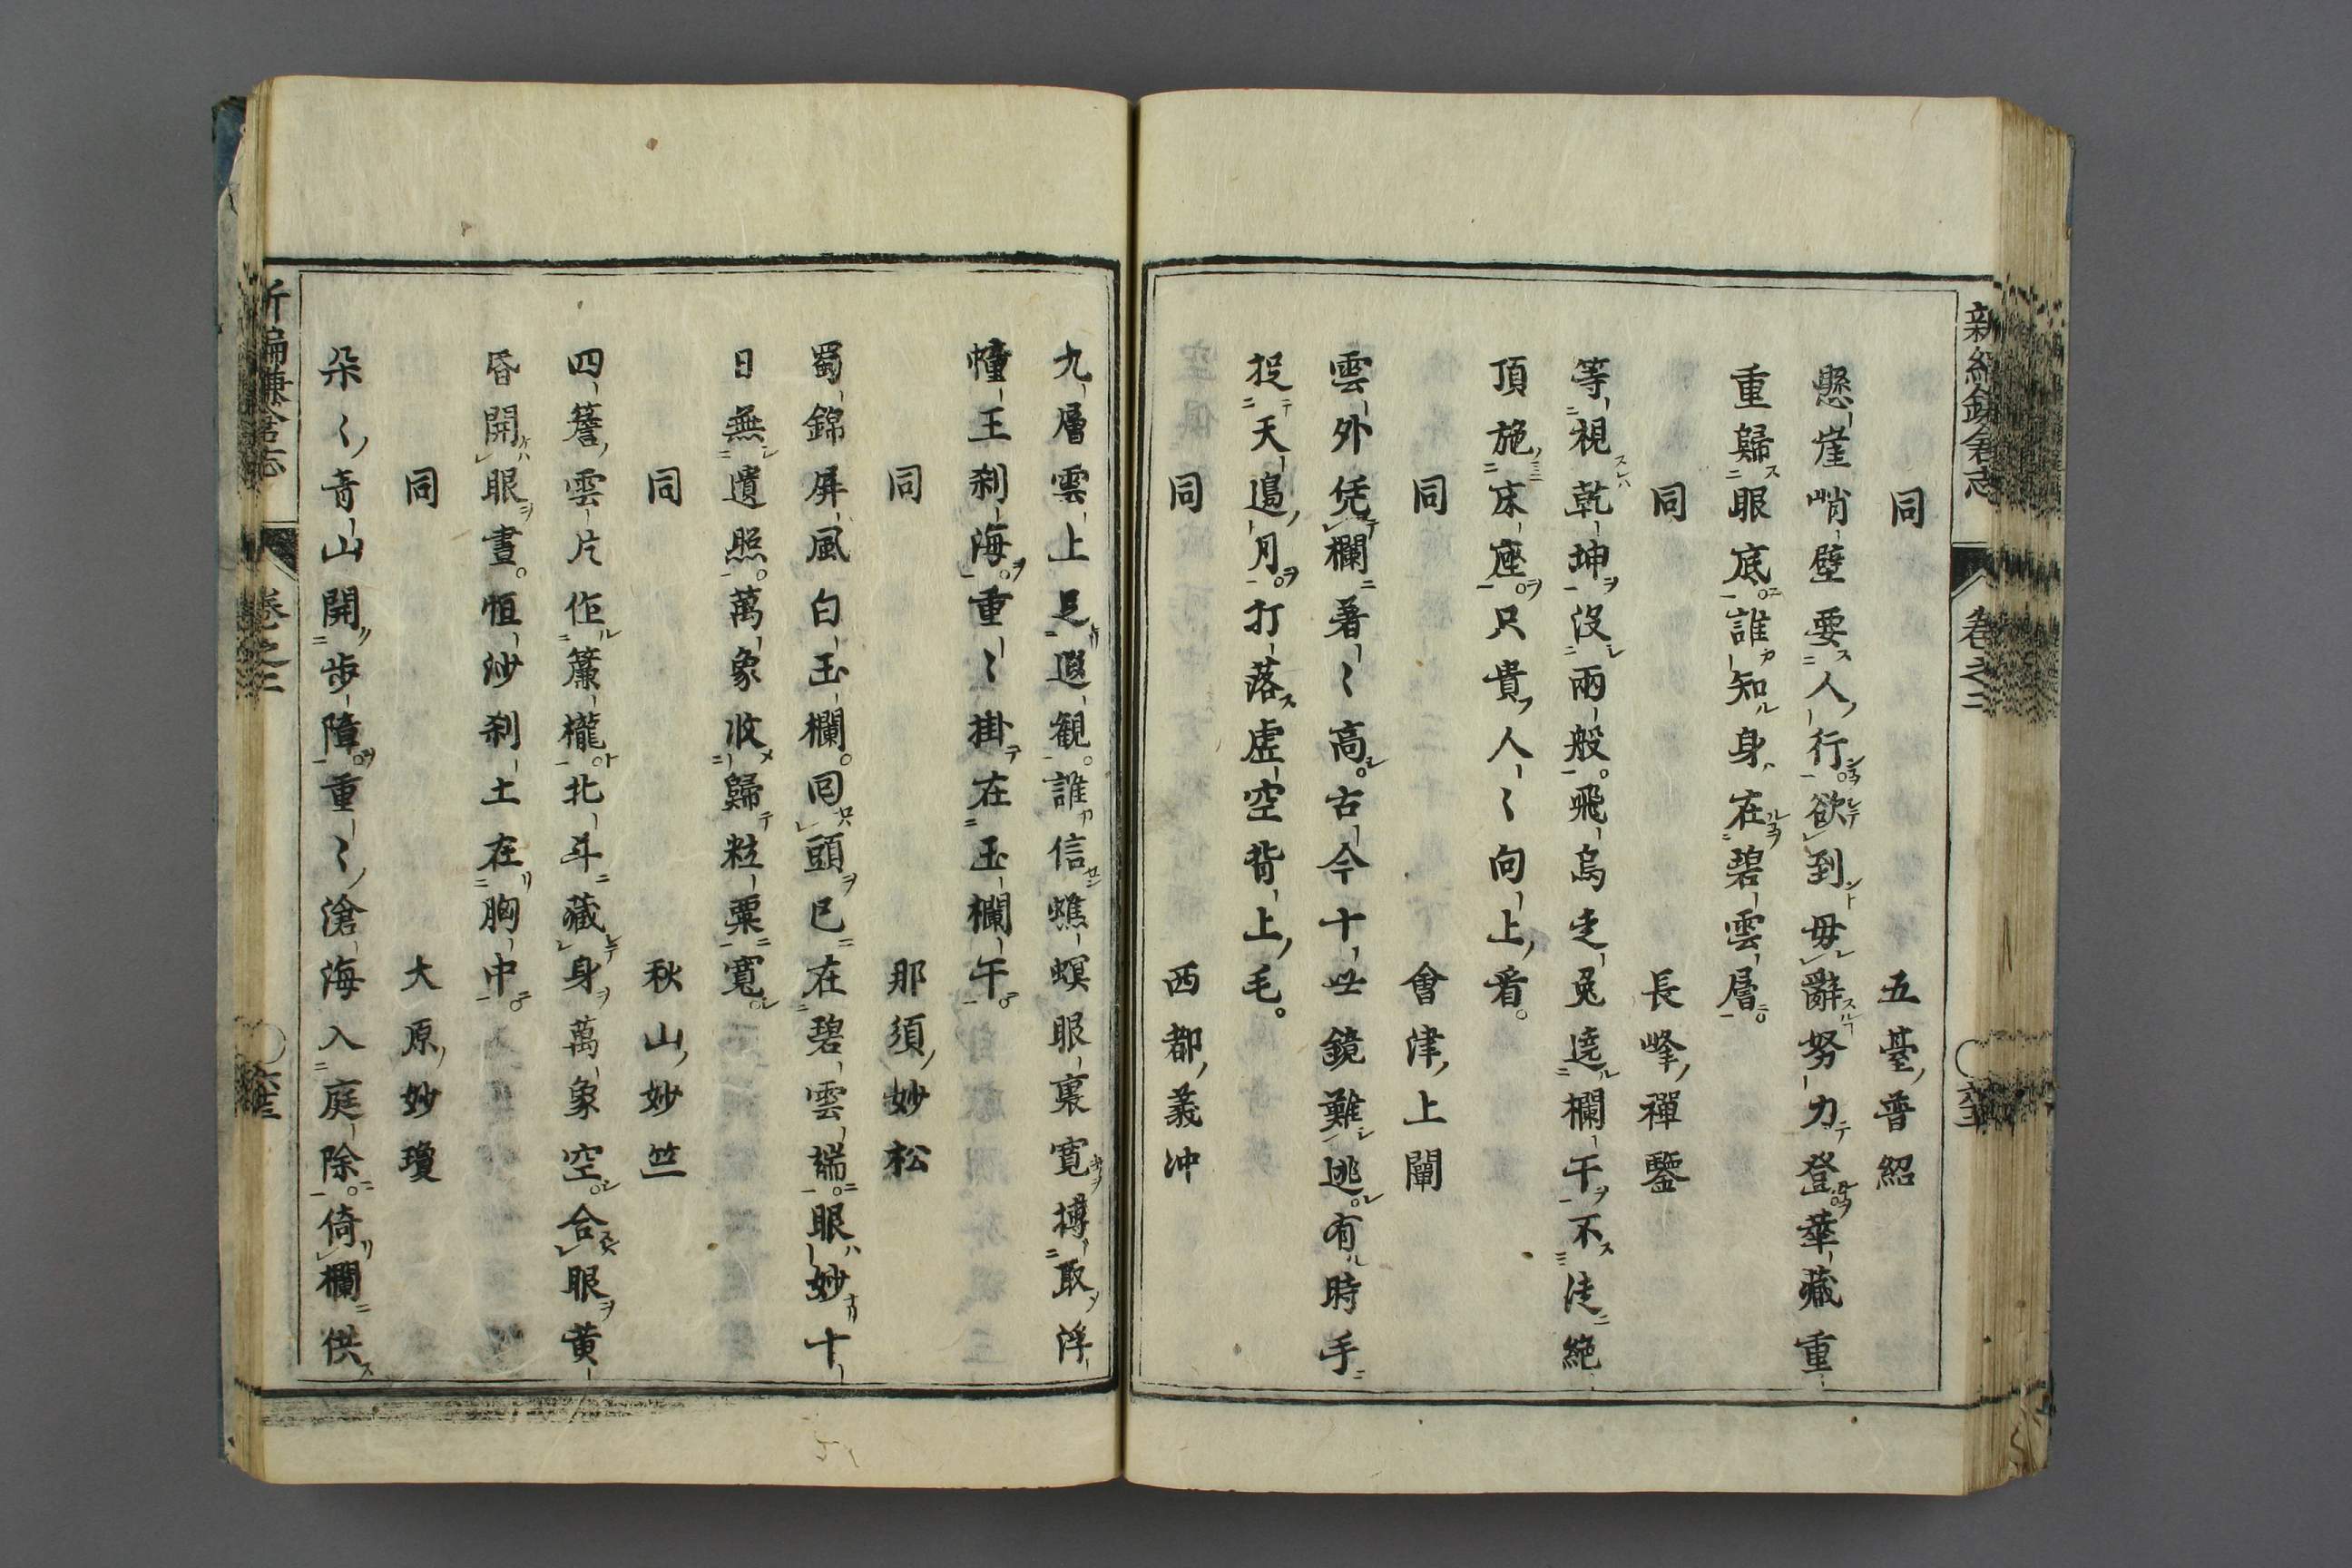 新編鎌倉志 卷之二
同 五臺普紹
懸崖峭壁要人行欲到毋辭努力登華藏重
重歸眼底誰知身在碧雲層
同 長峰禪鑒
等視乾坤沒兩般飛烏走兔遶欄干不徒絶
頂施床座只貴人〻向上看
同 會津上闡
雲外凭欄著〻高古今十世鏡難逃有時手
捉天邉月打落虚空背上毛
同 西都義冲
九層雲上足遐観誰信蟭螟眼裏寛摶取浮
幢王刹海重〻掛在玉欄午
同 那須妙松
蜀錦屏風白玉欄囘頭已在碧雲端眼妙十
日無遺照萬象收歸粒粟寛
同 秋山妙竺
四簷雲片作簾櫳北斗藏身萬象空合眼黄
昏開眼晝恒沙刹土在胸中
同 大原妙瓊
朶〻青山開歩障重〻滄海入庭除倚欄供
新編鎌倉志 卷之二